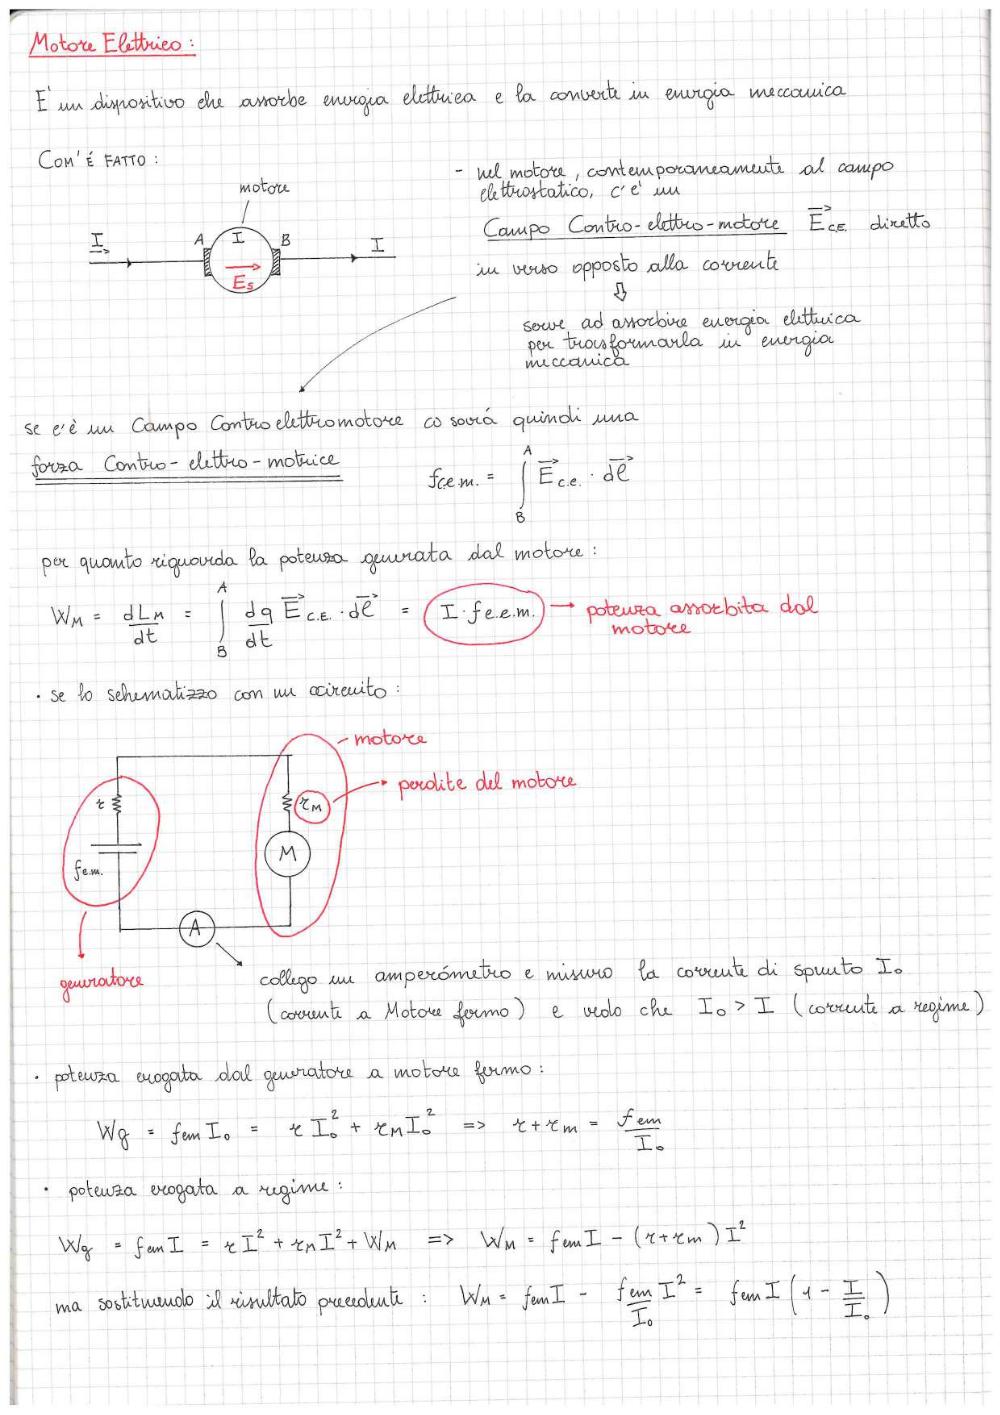 Motore Elettrico :
E' un dispositivo che assorbe energia elettrica e la converte in energia meccanica
COM' É FATTO :
motore
I
A
I
B
I
Es
- nel motore, contemporaneamente al campo
elettrostatico, c'è un
Campo Contro-elettro-motore E⃗c.E. diretto
in verso opposto alla corrente
⇩
serve ad assorbire energia elettrica
per trasformarla in energia
meccanica
se c'è un Campo Controelettromotore ci sarà quindi una
forza Contro-elettro-motrice
fc.e.m. = ∫_B^A E⃗c.e. · dl⃗
per quanto riguarda la potenza generata dal motore :
W_M = dL_M/dt = ∫_B^A dq/dt E⃗c.E. · dl⃗ = I · fc.e.m. → potenza assorbita dal
motore
· se lo schematizzo con un circuito :
motore
perdite del motore
r
r_M
M
fe.m.
A
generatore
collego un amperómetro e misuro la corrente di spunto I₀
(corrente a Motore fermo) e vedo che I₀ > I (corrente a regime)
· potenza erogata dal generatore a motore fermo :
Wg = fem I₀ = r I₀² + r_M I₀² => r + r_m = fem/I₀
· potenza erogata a regime :
Wg = fem I = r I² + r_M I² + W_M => W_M = fem I - (r + r_m) I²
ma sostituendo il risultato precedente : W_M = fem I - fem/I₀ I² = fem I (1 - I/I₀)